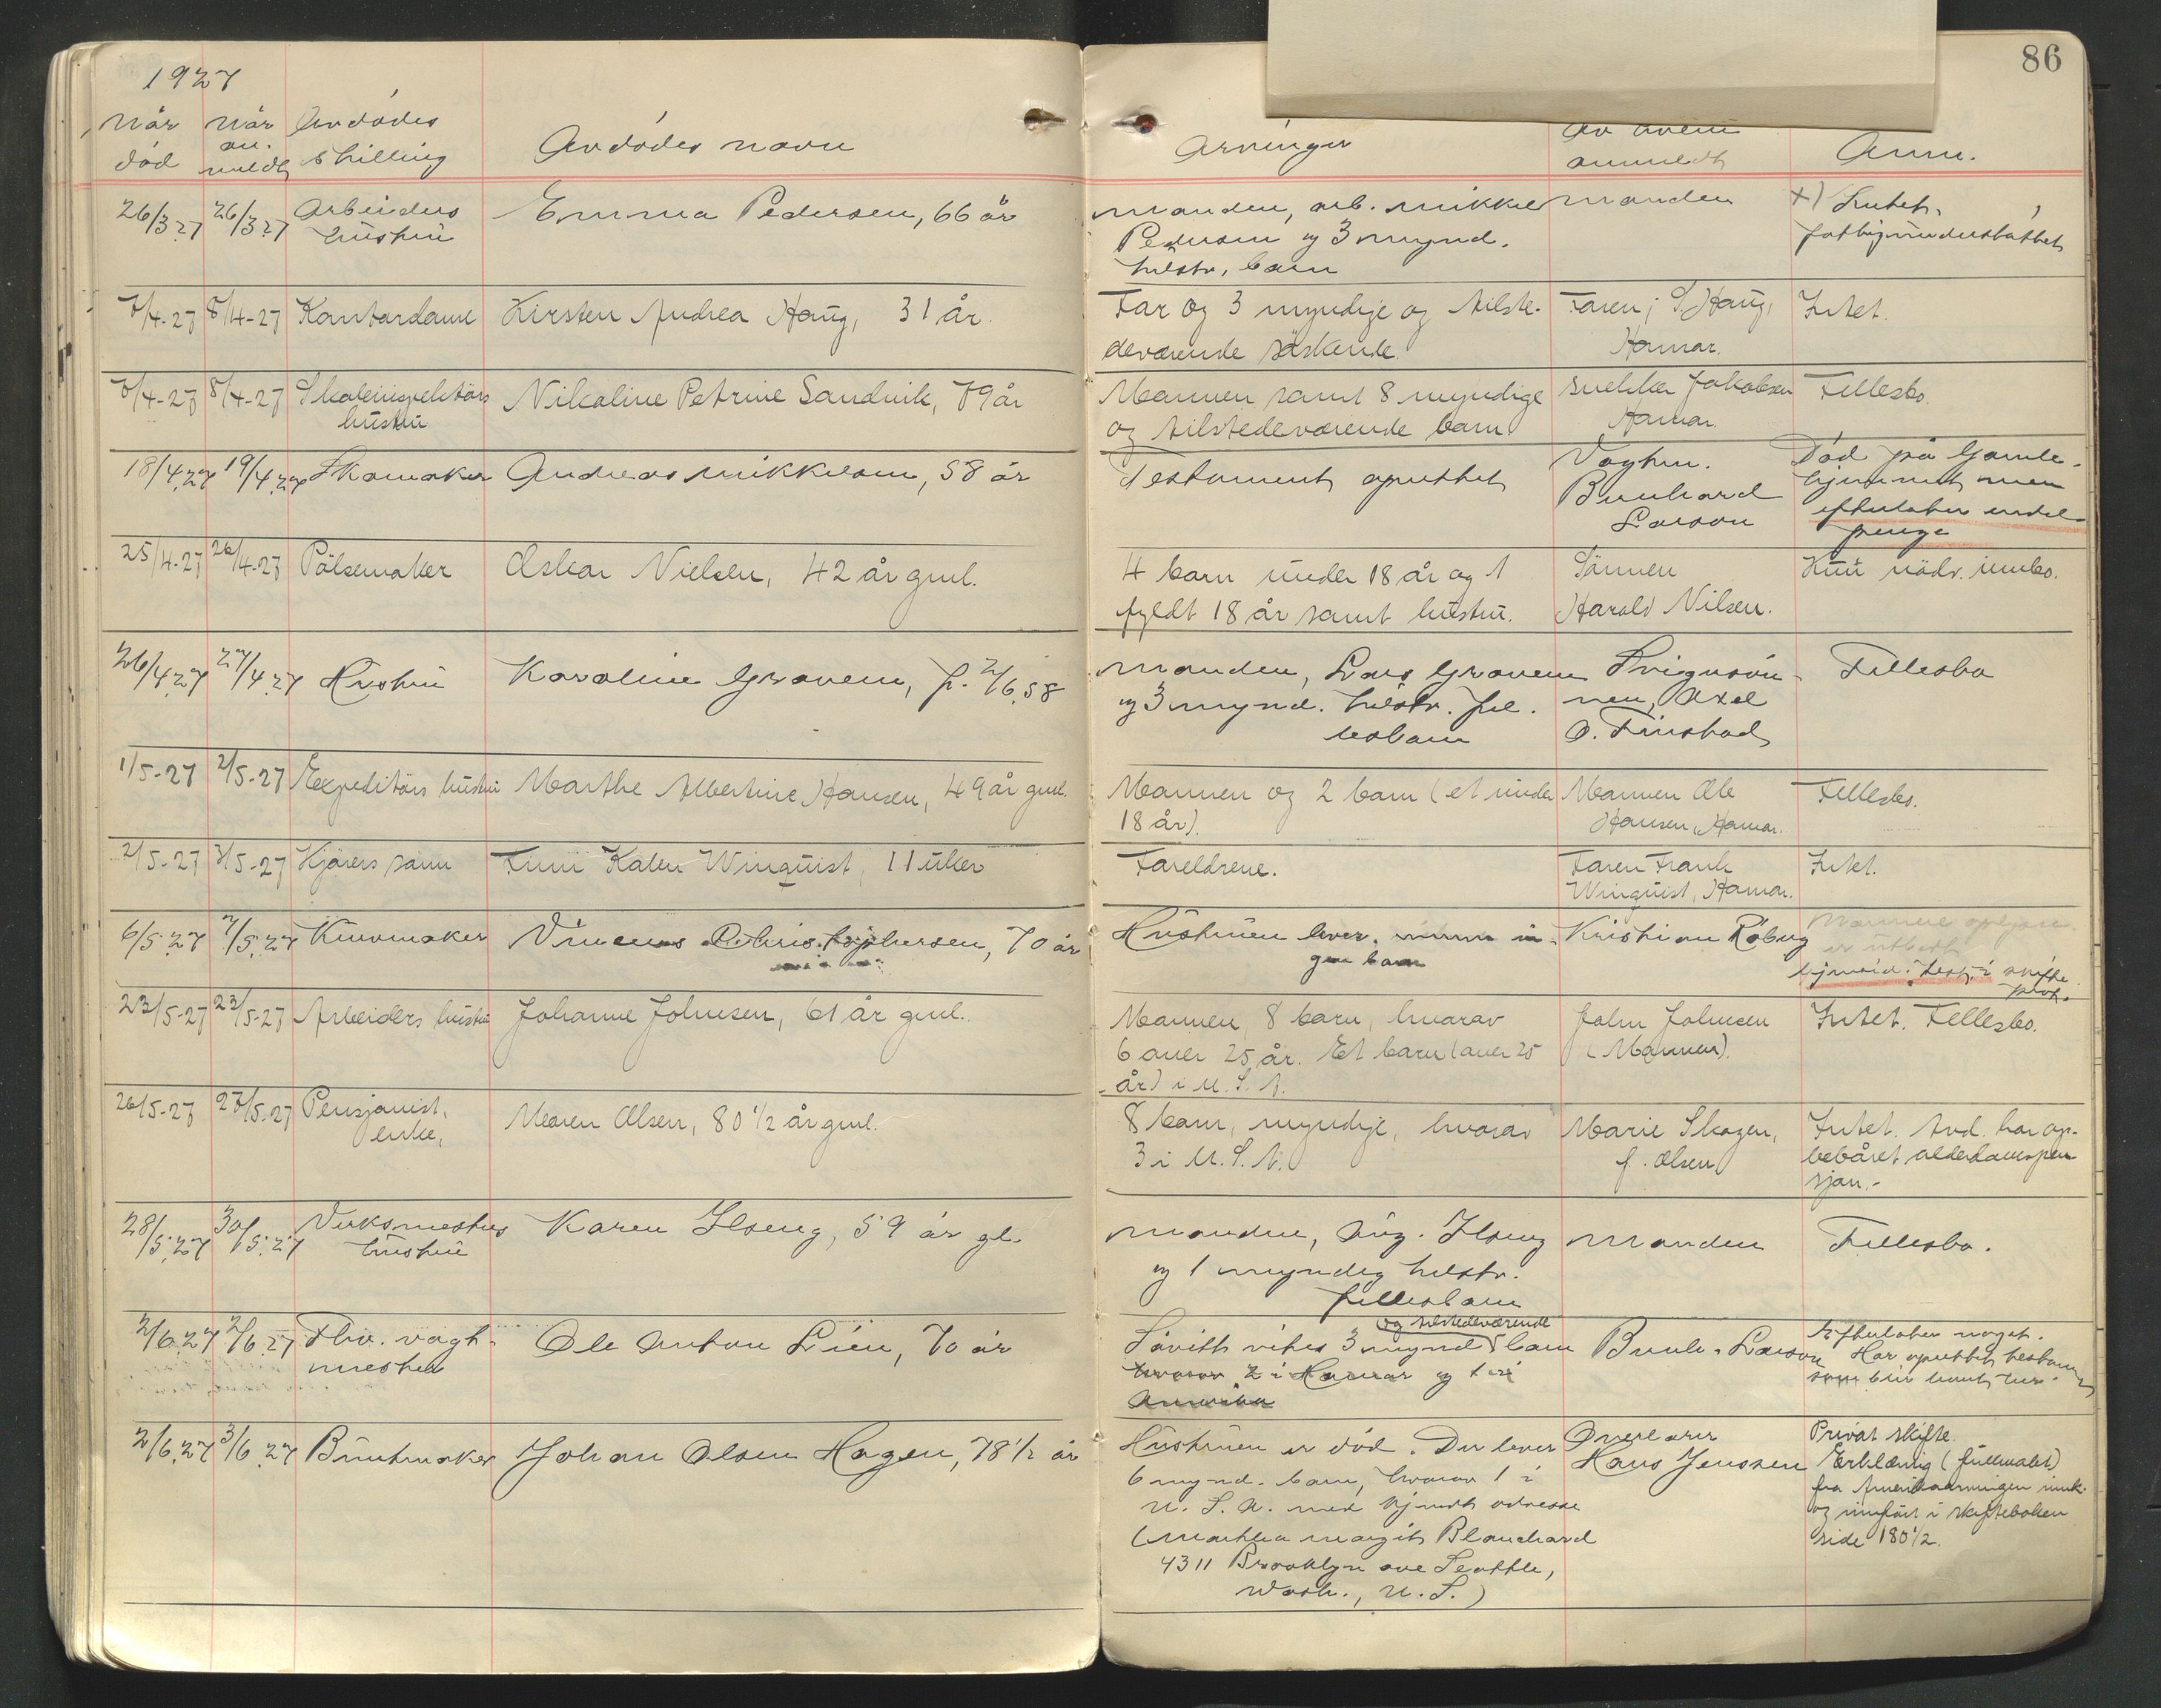 1927
86
Når død
Når an- meldt
Avdødes stilling
Avdødes navn
Arvinger
Av hvem anmeldt
Anm.
26/3 27 26/3 27 Arbeiders hustru
Emma Pedersen, 66 år
Manden, arb. Mikkel
Pedersen og 3 mynd.
tilstv. barn
Manden
x) Intet.
fattigunderstøttet
7/4-27 8/4-27 Kontordame
Kirsten Andrea Haug, 31 år.
Far og 3 myndige og tilste-
deværende søskende.
Faren, S. Haug,
Hamar.
Intet.
7/4-27 8/4-27 Skoleinspektørs
hustru
Nikoline Petrine Sandvik, 79 år
Mannen samt 8 myndige
og tilstedeværende barn
snekker Jakobsen
Hamar.
Fellesbo.
18/4.27 19/4.27 Skomaker
Andreas Mikkelsen, 58 år
Testament oprettet
Vagtm.
Bernhard
Larsen
Død på Gamle-
hjemmet men
efterlater endel
penge
25/4-27 26/4-27 Pølsemaker
Oskar Nielsen, 42 år gml.
4 barn under 18 år og 1
fyldt 18 år samt hustru.
Sønnen
Harald Nilsen.
Kun nødv. innbo.
26/4.27 27/4.27 Hustru
Karoline Graven, f. 2/6.58
Manden, Lars Graven
og 3 mynd. tilstv. fel-
lesbarn
Svigersøn-
nen, Axel
O. Finstad
Fellesbo
1/5-27 2/5-27 Expeditørs hustru
Marthe Albertine Hansen, 49 år gml.
Mannen og 2 barn (et under
18 år).
Mannen Ole
Hansen, Hamar.
Fellesbo.
2/5-27 3/5-27 Kjørers sønn
Finn Kaleu Winquist, 11 uker
Foreldrene.
Faren Frank
Winquist, Hamar.
Intet.
6/5.27 7/5.27 Kurvmaker
Vincens Christophersen, 70 år
Hustruen lever. in-
gen barn
Kristian Roberg
hjemvid. Test. i skifte
prot.
23/5-27 23/5-27 Arbeiders hustru
Johanne Johnsen, 61 år gml.
Mannen, 8 barn, hvorav
6 over 25 år. Et barn (over 25
år) i U.S.A.
John Johnsen
(Mannen).
Intet. Fellesbo.
26/5-27 27/5-27 Pensjonist,
enke,
Maren Olsen, 80 1/2 år gml.
8 barn, myndige, hvorav
3 i U.S.A.
Marie Skogen,
f. Olsen
Intet. Avd. har op-
bebåret alderdomspen
sjon.-
28/5.27 30/5.27 Verksmesters
hustru
Karen Ilseng, 59 år gl.
Manden, Aug. Ilseng
og 1 myndig tilstv.
fellesbarn
Manden
Fellesbo.
2/6.27 2/6.27 Fhv. vagt-
mester
Ole Anton Lien, 70 år
og tilstedeværende
Såvidt vites 3 mynd barn
hvorav 2 i Hamar og 1 i
Amerika
Bernh. Larsen
Efterlater noget.
Har oprettet testam
som blir hert her.
2/6.27 3/6.27 Buntmaker
Johan Olsen Hagen, 78 1/2 år
Hustruen er død. Der lever
6 mynd. barn, hvorav 1 i
U.S.A. med kjendt adresse
(Marthea Margit Blanchard
4311 Brooklyn ave Seattle,
Wash., U.S.)
Overlærer
Hans Jenssen
Privat skifte.
Erklæring (fullmakt)
fra Amerikaarvingen innk.
og innført i skifteboken
side 180 1/2.